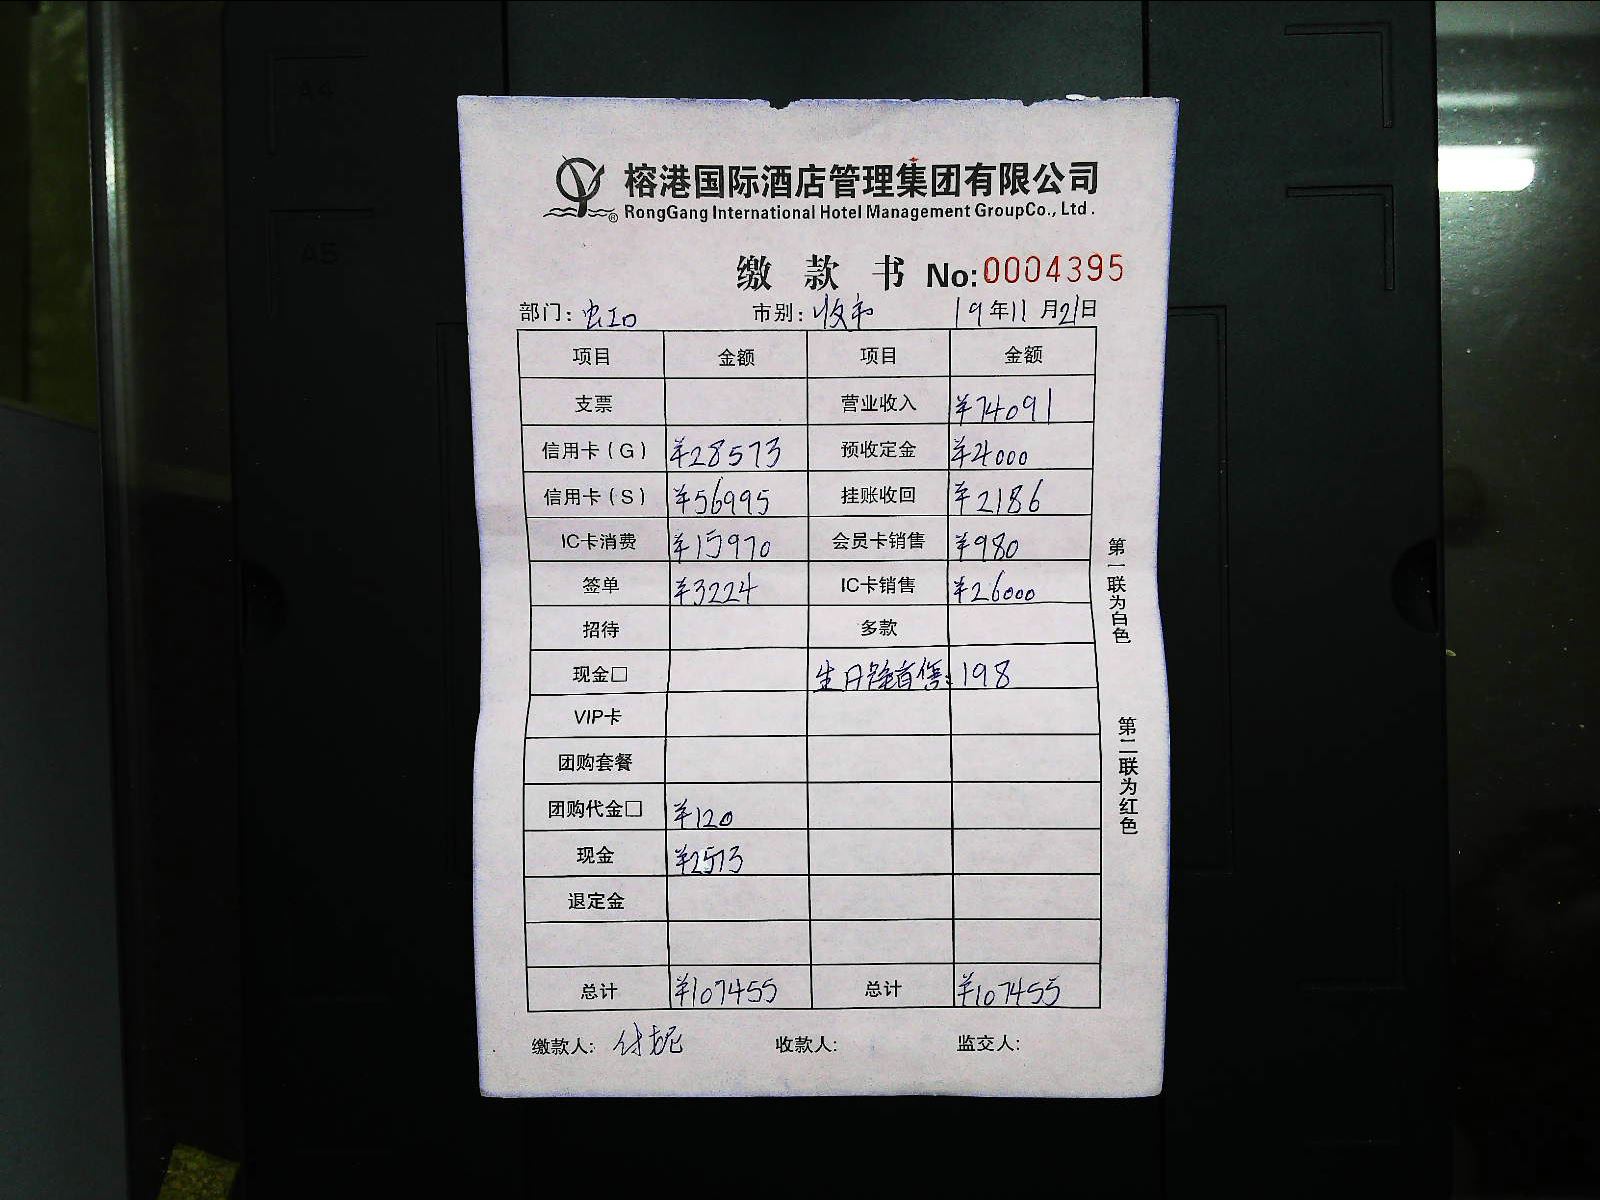 A4
A5
榕港国际酒店管理集团有限公司
RongGang International Hotel Management GroupCo., Ltd.
缴款书 No:0004395
部门: 虹口 市别: 收市 19年11月21日
项目 金额 项目 金额
支票 营业收入 ¥74091
信用卡(G) ¥28573 预收定金 ¥4000
信用卡(S) ¥56995 挂账收回 ¥2186
IC卡消费 ¥15970 会员卡销售 ¥980
签单 ¥3224 IC卡销售 ¥26000
招待 多款
现金□ 生日 售: 198
VIP卡
团购套餐
团购代金□ ¥120
现金 ¥2573
退定金
总计 ¥107455 总计 ¥107455
缴款人: 收款人: 监交人:
第一联为白色
第二联为红色